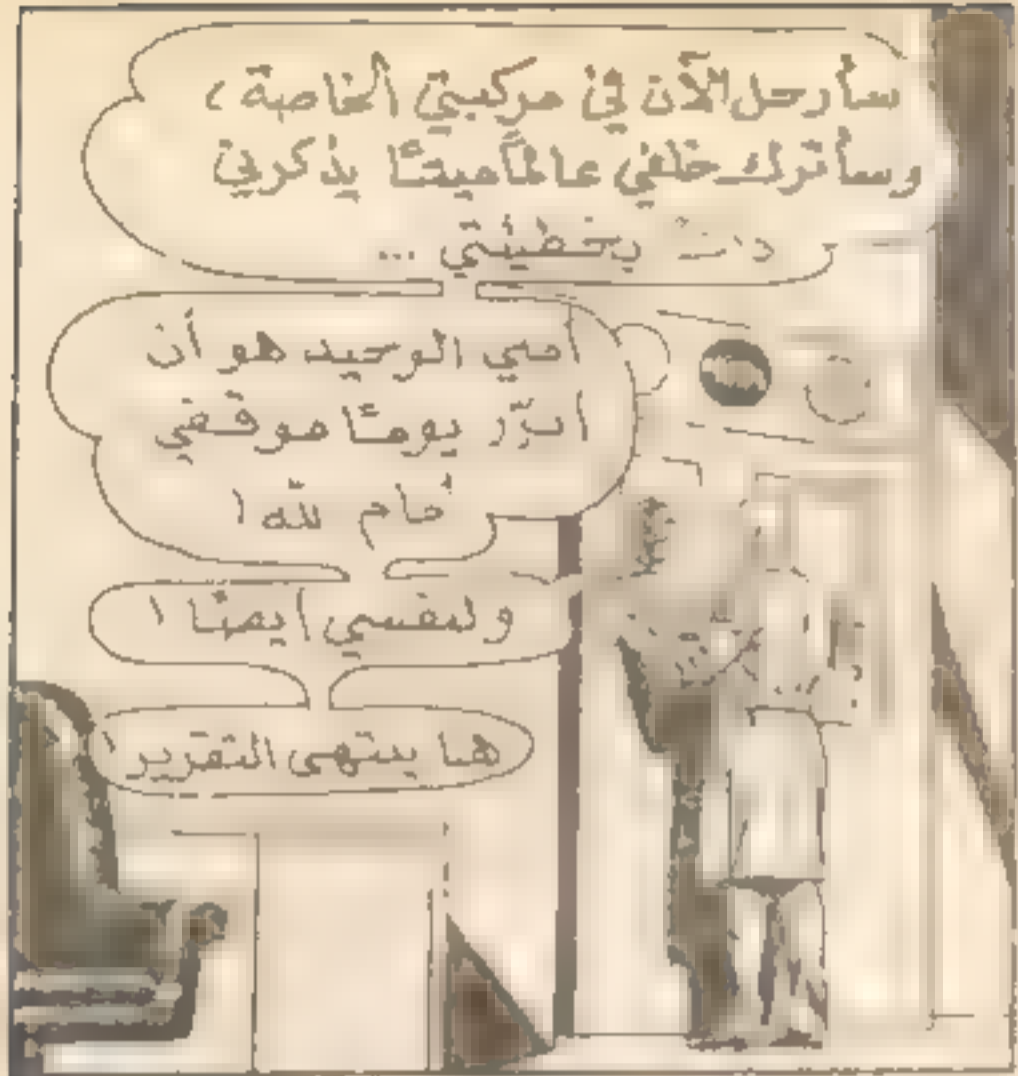 سأرحل الآن في مركبتي الخاصة ،
وسأترك خلفي عالماً ميتـًا يذكرني
بخطيئتي ...
الوحيد هو أن
يومـًا موقفي
ولنفسي أيضـًا !
هنا ينتهي التقرير !